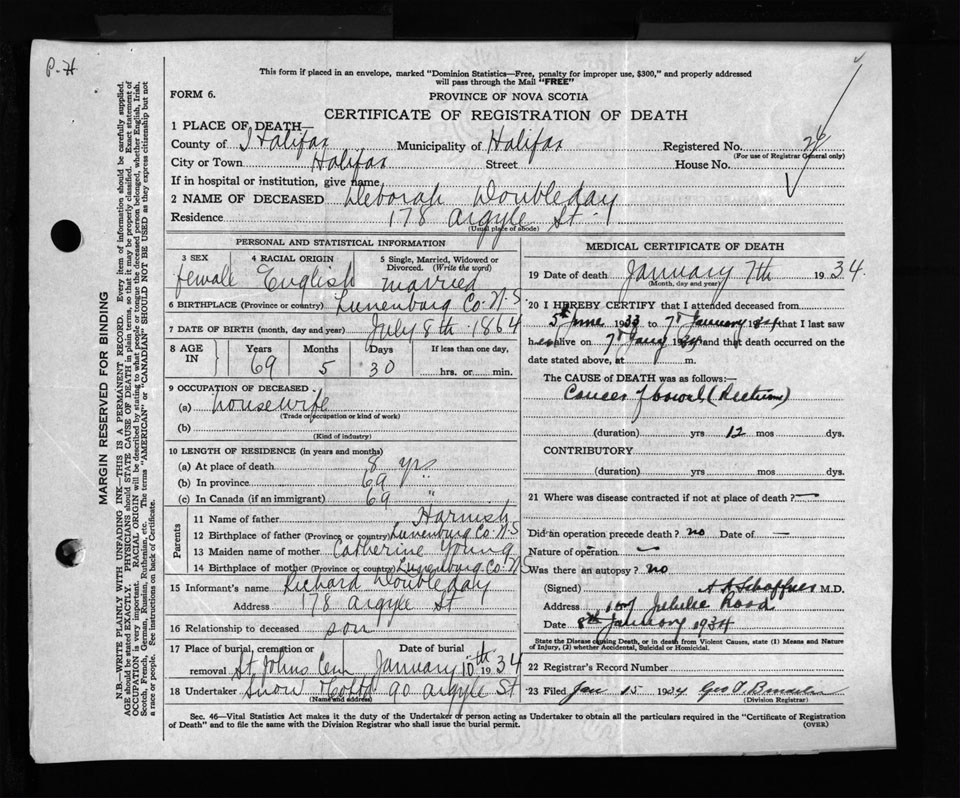 P.H
This form if placed in an envelope, marked "Dominion Statistics—Free, penalty for improper use, $300," and properly addressed
will pass through the Mail "FREE"
FORM 6.
PROVINCE OF NOVA SCOTIA
CERTIFICATE OF REGISTRATION OF DEATH
1 PLACE OF DEATH—
County of Halifax Municipality of Halifax Registered No.
(For use of Registrar General only)
City or Town Halifax Street House No.
If in hospital or institution, give name
2 NAME OF DECEASED Deborah Doubleday
Residence 178 Argyle St.
(Usual place of abode)
PERSONAL AND STATISTICAL INFORMATION
3 SEX 4 RACIAL ORIGIN 5 Single, Married, Widowed or Divorced. (Write the word)
female English married
6 BIRTHPLACE (Province or country) Lunenburg Co. N.S
7 DATE OF BIRTH (month, day and year) July 8th 1864
8 AGE IN Years Months Days If less than one day,
69 5 30 hrs. or min.
9 OCCUPATION OF DECEASED
(a) housewife
(Trade or occupation or kind of work)
(b)
(Kind of industry)
10 LENGTH OF RESIDENCE (in years and months)
(a) At place of death 8 yrs
(b) In province 69 "
(c) In Canada (if an immigrant) 69 "
Parents
11 Name of father Harnish
12 Birthplace of father (Province or country) Lunenburg Co. N.S
13 Maiden name of mother Catherine Young
14 Birthplace of mother (Province or country) Lunenburg Co. N.S
15 Informant's name Richard Doubleday
Address 178 Argyle St
16 Relationship to deceased son
17 Place of burial, cremation or removal Date of burial
St Johns Cem January 10th 1934
18 Undertaker Snow 90 Argyle St
(Name and address)
MEDICAL CERTIFICATE OF DEATH
19 Date of death January 7th 1934.
(Month, day and year)
20 I HEREBY CERTIFY that I attended deceased from
5th June 1933 to 7th January 1934 that I last saw
her alive on 7th Jany 1934 and that death occurred on the
date stated above, at m.
The CAUSE of DEATH was as follows:—
Cancer of bowel (Rectum)
(duration) yrs 12 mos dys.
CONTRIBUTORY
(duration) yrs mos dys.
21 Where was disease contracted if not at place of death ? —
Did an operation precede death ? no Date of —
Nature of operation
Was there an autopsy ? no
(Signed) M.D.
Address Road
Date 8th January 1934
State the Disease causing Death, or in death from Violent Causes, state (1) Means and Nature
of Injury, (2) whether Accidental, Suicidal or Homicidal.
22 Registrar's Record Number
23 Filed Jan 15 1934
(Division Registrar)
Sec. 46—Vital Statistics Act makes it the duty of the Undertaker or person acting as Undertaker to obtain all the particulars required in the "Certificate of Registration
of Death" and to file the same with the Division Registrar who shall issue the burial permit.
(OVER)
MARGIN RESERVED FOR BINDING
N.B.—WRITE PLAINLY WITH UNFADING INK—THIS IS A PERMANENT RECORD. Every item of information should be carefully supplied.
AGE should be stated EXACTLY. PHYSICIANS should STATE CAUSE OF DEATH in plain terms, so that it may be properly classified. Exact statement of
OCCUPATION is very important. RACIAL ORIGIN will be described by stating to what people or tongue the deceased person belonged, whether English, Irish,
Scotch, French, German, Russian, Ruthenian, etc. The terms "AMERICAN" or "CANADIAN" SHOULD NOT BE USED as they express citizenship but not
a race or people. See instructions on back of Certificate.